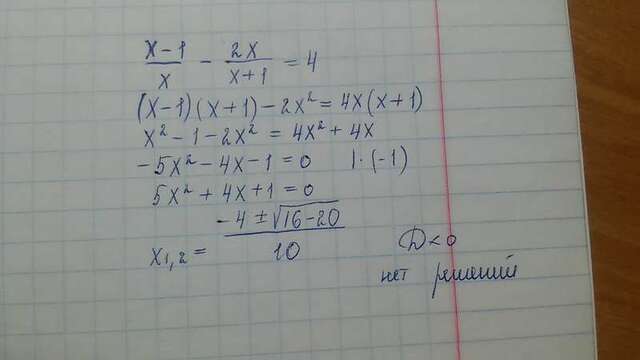 x-1/x - 2x/x+1 = 4
(x-1)(x+1) - 2x² = 4x(x+1)
x² - 1 - 2x² = 4x² + 4x
-5x² - 4x - 1 = 0 | · (-1)
5x² + 4x + 1 = 0
x₁,₂ = -4 ± √16-20 / 10 D < 0
нет решений